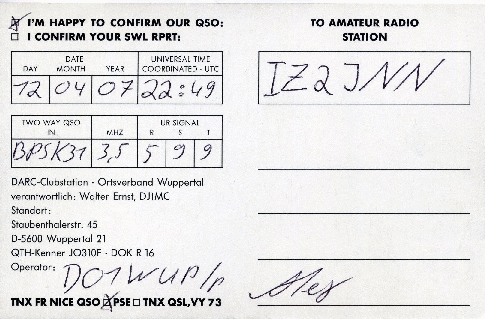 ☒ I'M HAPPY TO CONFIRM OUR QSO:
☐ I CONFIRM YOUR SWL RPRT:
TO AMATEUR RADIO
STATION
IZ2JNN
DATE
DAY MONTH YEAR
UNIVERSAL TIME
COORDINATED - UTC
12 04 07 22:49
TWO WAY QSO
IN
MHZ
UR SIGNAL
R S T
BPSK31 3,5 5 9 9
DARC-Clubstation - Ortsverband Wuppertal
verantwortlich: Walter Ernst, DJ1MC
Standort:
Staubenthalerstr. 45
D-5600 Wuppertal 21
QTH-Kenner JO31OF - DOK R 16
Operator: DO1WUP/p
TNX FR NICE QSO ☒ PSE ☐ TNX QSL, VY 73